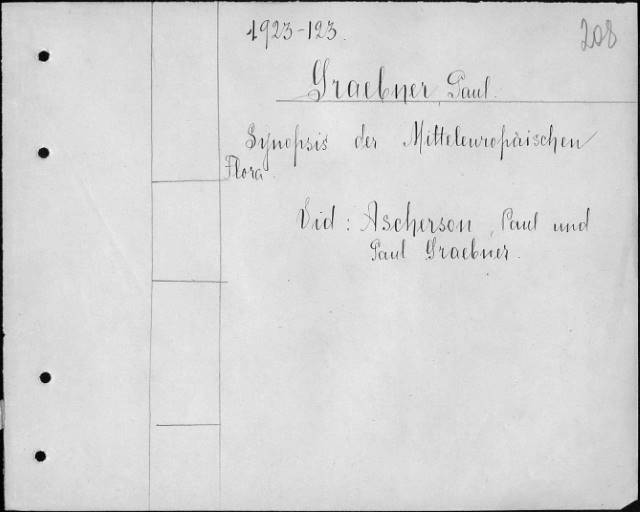 1923-123.
208
Graebner, Paul.
Synopsis der Mitteleuropäischen
Flora.
Vid: Ascherson, Paul und
Paul Graebner.